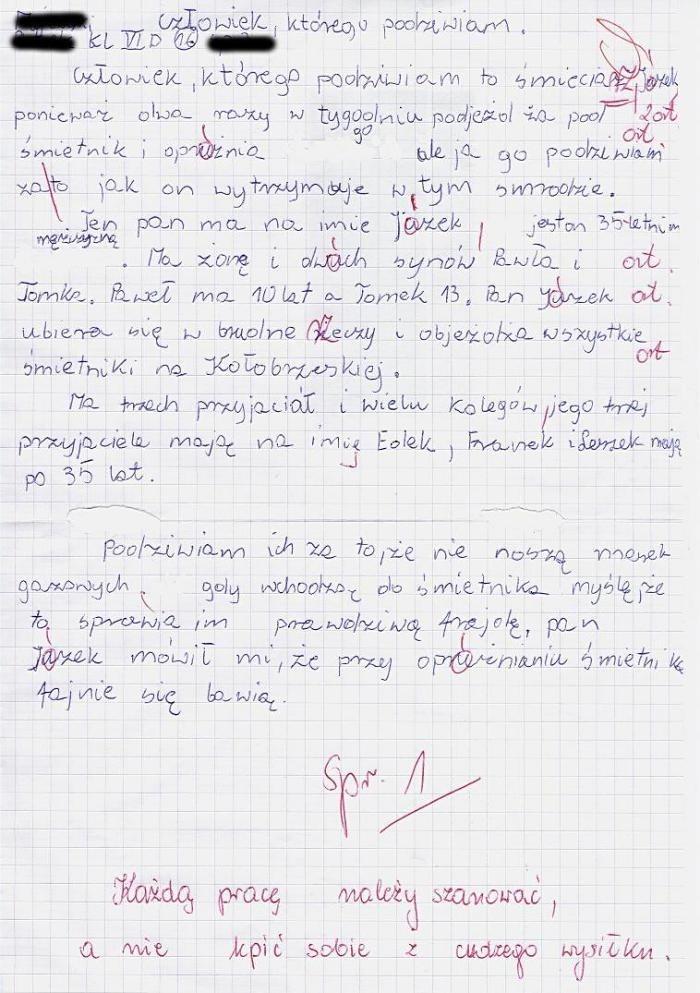 Człowiek, którego podziwiam.
KL VI D 16
Człowiek, którego podziwiam to śmieciaż, Jazek
ponieważ dwa razy w tygodniu podjeżdża pod 2 ort
śmietnik i oprużnia go ale ja go podziwiam ort
za to jak on wytrzymuje w tym smrodzie.
Ten pan ma na imie Jazek, jest on 35-letnim
mężczyzną. Ma żonę i dwuch synów Pawła i ort.
Tomka. Paweł ma 10 lat a Tomek 13. Pan Jazek ort.
ubiera się w brudne żeczy i objeżdża wszystkie
śmietniki na Kołobrzeskiej. ort
Ma trzech przyjaciół i wielu kolegów, jego trzej
przyjaciele mają na imię Lolek, Franek i Leszek mają
po 35 lat.
Podziwiam ich za to, że nie noszą masek
gazowych, gdy wchodzą do śmietnika myślę, że
to sprawia im prawdziwą frajdę, pan
Jazek mówił mi, że przy oprużnianiu śmietnika
fajnie się bawią.
Spr. 1
Każdą pracę należy szanować,
a nie kpić sobie z cudzego wysiłku.